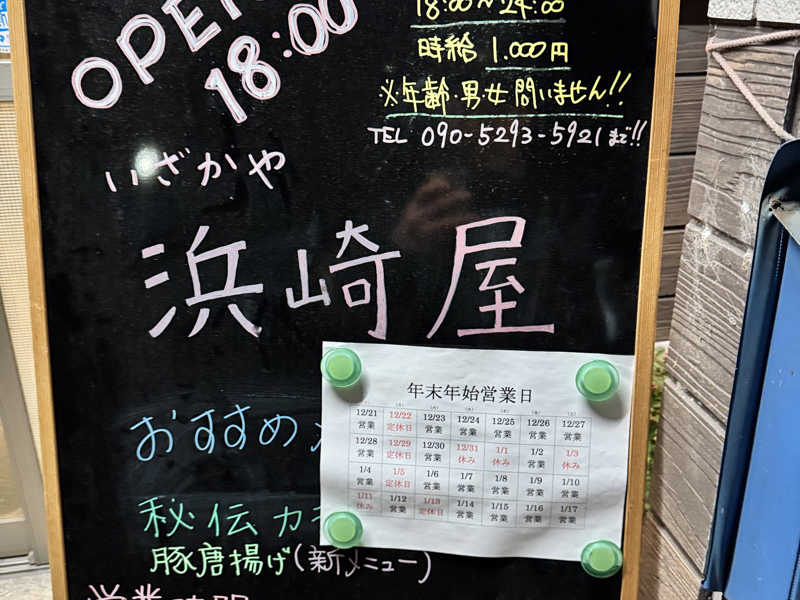 OPEN
18:00
18:00〜24:00
時給 1,000円
※年齢・男女問いません!!
TEL 090-5293-5921まで!!
いざかや
浜崎屋
おすすめ
秘伝カ
豚唐揚げ(新メニュー)
営業時間
年末年始営業日
12/21 12/22 12/23 12/24 12/25 12/26 12/27
営業 定休日 営業 営業 営業 営業 営業
12/28 12/29 12/30 12/31 1/1 1/2 1/3
営業 定休日 営業 休み 休み 営業 休み
1/4 1/5 1/6 1/7 1/8 1/9 1/10
営業 定休日 営業 営業 営業 営業 営業
1/11 1/12 1/13 1/14 1/15 1/16 1/17
休み 営業 定休日 営業 営業 営業 営業